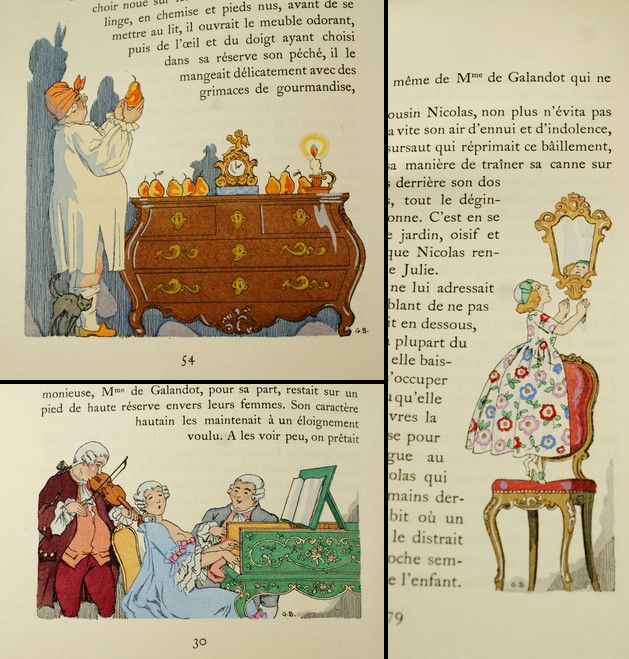 choir noué sur
linge, en chemise et pieds nus, avant de se
mettre au lit, il ouvrait le meuble odorant,
puis de l'œil et du doigt ayant choisi
dans sa réserve son péché, il le
mangeait délicatement avec des
grimaces de gourmandise,
G.B.
54
monieuse, Mme de Galandot, pour sa part, restait sur un
pied de haute réserve envers leurs femmes. Son caractère
hautain les maintenait à un éloignement
voulu. A les voir peu, on prêtait
G.B.
30
même de Mme de Galandot qui ne
ousin Nicolas, non plus n'évita pas
a vite son air d'ennui et d'indolence,
sursaut qui réprimait ce bâillement,
sa manière de traîner sa canne sur
s derrière son dos
s, tout le dégin-
onne. C'est en se
e jardin, oisif et
que Nicolas ren-
e Julie.
ne lui adressait
blant de ne pas
it en dessous,
a plupart du
elle bais-
'occuper
u qu'elle
vres la
se pour
gue au
olas qui
mains der-
bit où un
le distrait
oche sem-
e l'enfant.
G.B.
79